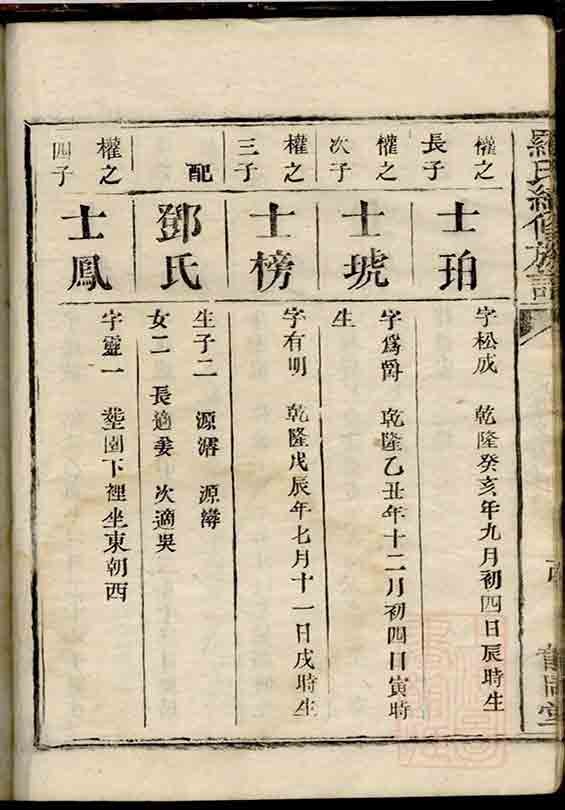 羅氏續修族譜
權之長子
士珀
字松成 乾隆癸亥年九月初四日辰時生
權之次子
士琥
字為爵 乾隆乙丑年十二月初四日寅時
生
權之三子
士榜
字有明 乾隆戊辰年七月十一日戌時生
配
鄧氏
生子二 源濳 源
女二 長適姜 次適吳
權之四子
士鳳
字靈一 塟園下裡坐東朝西